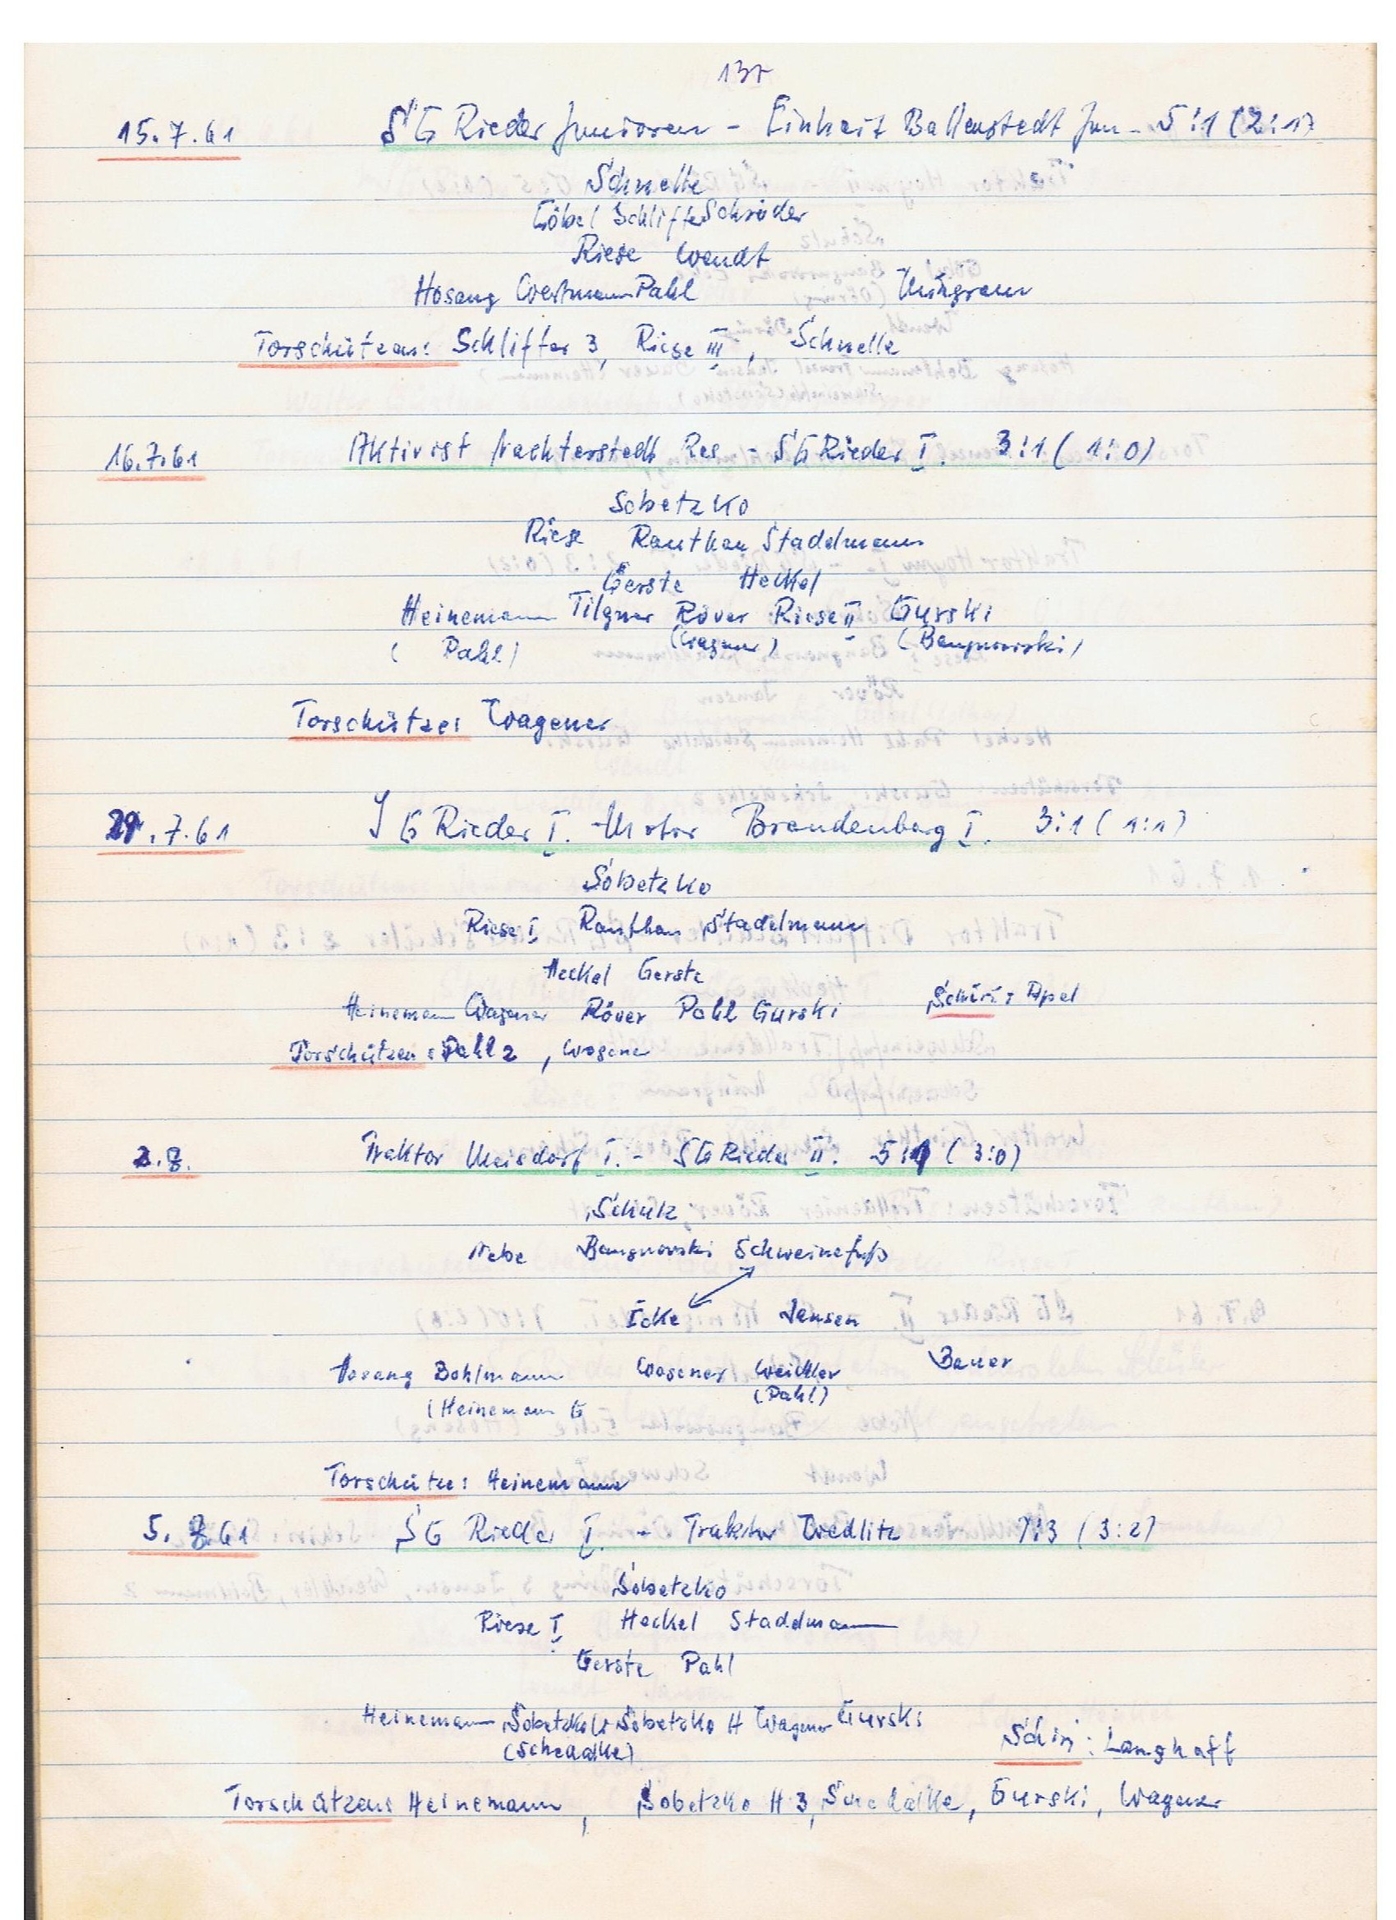 15.7.61 SG Rieder Junioren - Einheit Ballenstedt Jun - 5:1 (2:1)
Schnelle
Göbel Schlifter Schröder
Riese Wendt
Hosang Westmann Pahl Mingram
Torschützen: Schlifter 3, Riese III, Schnelle
16.7.61 Aktivist Nachterstedt Res - SG Rieder I. 3:1 (1:0)
Sobetzko
Riese Stadelmann
Gerste Heckel
Heinemann Tilgner Röver Riese II Gurski
(Pahl) (Wagner)
Torschütze: Wagener
.7.61 SG Rieder I. - Motor Brandenburg I. 3:1 (1:1)
Sobetzko
Riese I Stadelmann
Heckel Gerste
Heinemann Wagener Röver Pahl Gurski Schiri: Apel
Torschützen: Pahl 2, Wagener
Traktor Meisdorf I. - SG Rieder II. 5:1 (3:0)
Schulz
Nebe Schweinefuß
Ecke Jansen
Hosang Bohlmann Wagener Weichler Bauer
(Heinemann G (Pahl)
Torschütze: Heinemann
5.8.61 SG Rieder I. - Traktor Wedlitz 7:3 (3:2)
Sobetzko
Riese I Heckel Stadelmann
Gerste Pahl
Heinemann Sobetzko Sobetzko H Wagener Gurski
(Schedalke) Schiri: Langhoff
Torschützen: Heinemann, Sobetzko H 3, Schedalke, Gurski, Wagener